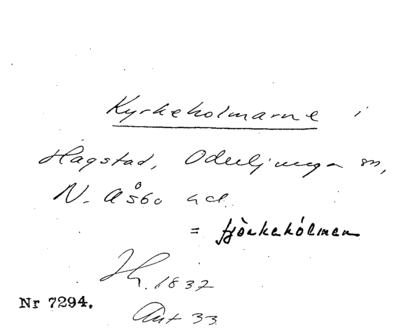 Kyrkeholmarne i
Hagstad, Oderljunga sn,
N. Åsbo hd.
= fjörkehólmen
H. 1832
Nr 7294.
Ant 33